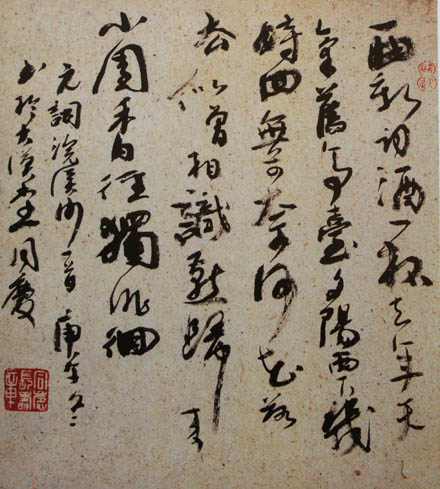 一曲新词酒一杯去年天
氣舊亭臺夕陽西下幾
時回無可奈何花落
去似曾相識燕歸来
小園香徑獨徘徊
元詞浣溪沙一首 庚午
书於大漠 同慶